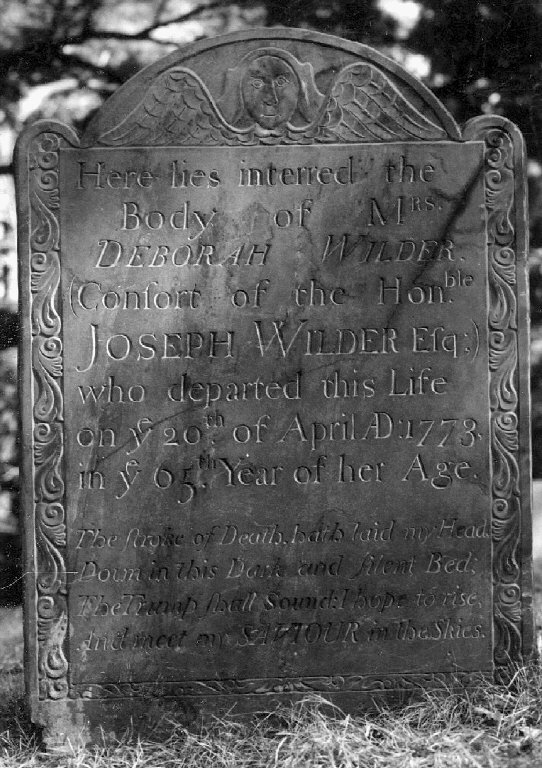 Here lies interred the
Body of Mrs.
DEBORAH WILDER.
(Conſort of the Hon.ble
JOSEPH WILDER Eſq;)
who departed this Life
on yͤ 20th. of April AD: 1773.
in yͤ 65th. Year of her Age.
The ſtroke of Death, hath laid my Head
Down in this Dark and ſilent Bed;
The Trump ſhall Sound: I hope to riſe,
And meet my SAVIOUR in the Skies.